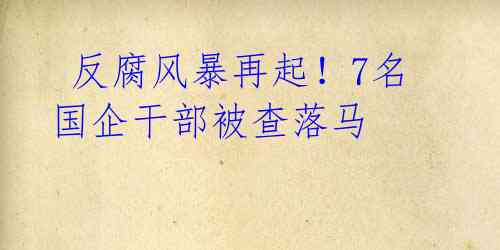 反腐风暴再起！7名
国企干部被查落马